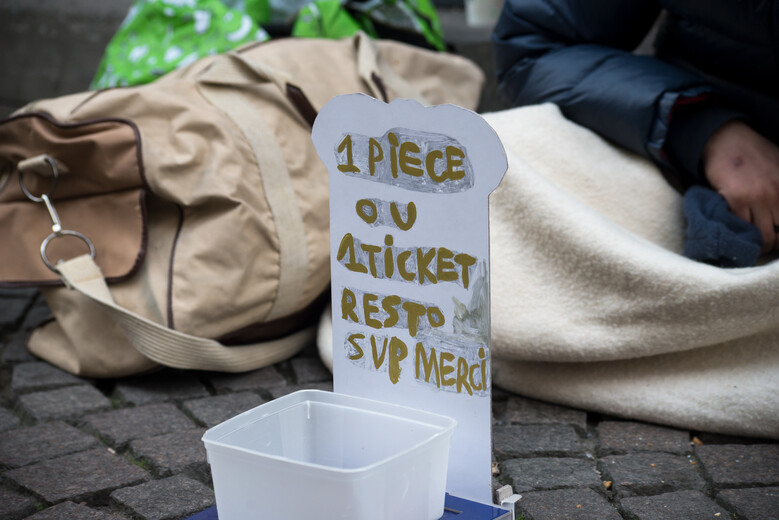 1 PiECE
OU
1TiCKET
RESTO
SVP MERCi